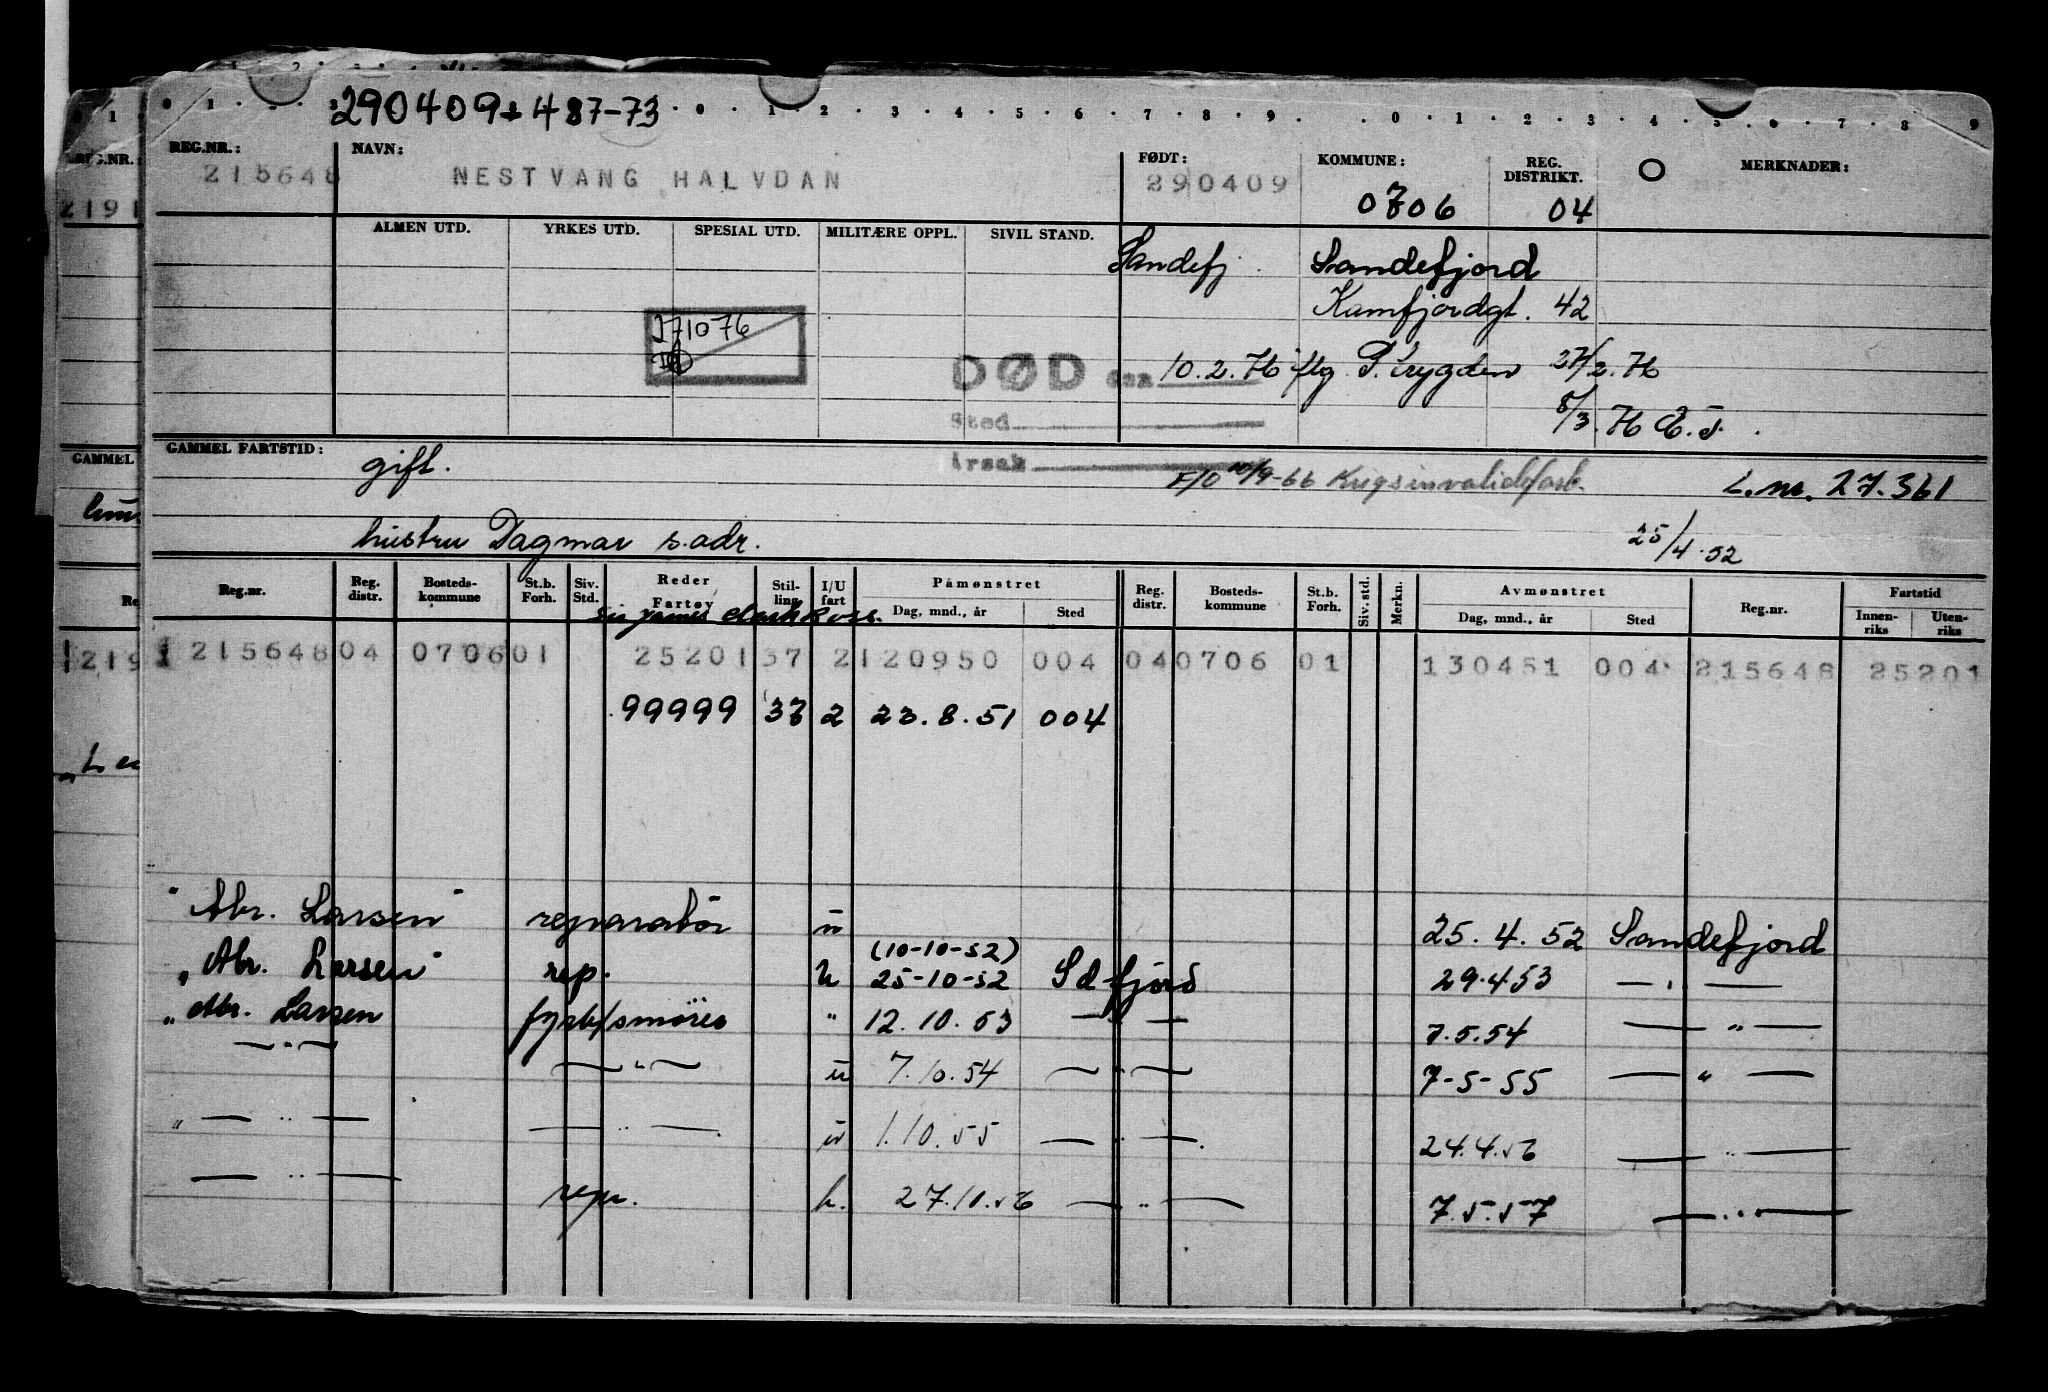 290409 + 487-73
REG.NR.: NAVN: FØDT: KOMMUNE: REG. DISTRIKT. O MERKNADER:
215648 NESTVANG HALVDAN 290409 0706 04
ALMEN UTD. YRKES UTD. SPESIAL UTD. MILITÆRE OPPL. SIVIL STAND.
Sandefj. Sandefjord
Kamfjordgt. 42
271076
DØD den 10.2.76 iflg P.trygden 27/2.76
Sted
8/3.76 E.J.
GAMMEL FARTSTID: gift. Årsak
F/O 10/9-66 Krigsinvalidefork. L.nr. 27.361
hustru Dagmar s.adr. 25/4.52
Reg.nr. Reg. distr. Bosteds-kommune St.b. Forh. Siv. Std. Reder Fartøy Stil-ling I/U fart Påmønstret Dag, mnd., år Sted Reg. distr. Bosteds-kommune St.b. Forh. Siv. std. Merkn. Avmønstret Dag, mnd., år Sted Reg.nr. Fartstid Innen-riks Uten-riks
Sir James Clark Ross.
215648 04 0706 01 25201 37 2 120950 004 04 0706 01 130451 004 215648 25201
99999 37 2 23.8.51 004
"Abr. Larsen" reparatør u 25.4.52 Sandefjord
(10-10-52)
"Abr. Larsen" rep. u 25-10-52 Sdfjord 29.4.53 — " —
"Abr. Larsen fyrb/smører " 12.10.53 — " — 7.5.54 — " —
— " — — " — u 7.10.54 — " — 7-5-55 — " —
" — " — — " — u 1.10.55 — " — 24.4.56 — " —
— " — repr. u. 27.10.56 — " — 7.5.57 — " —
REG.NR.:
2191
GAMMEL
219